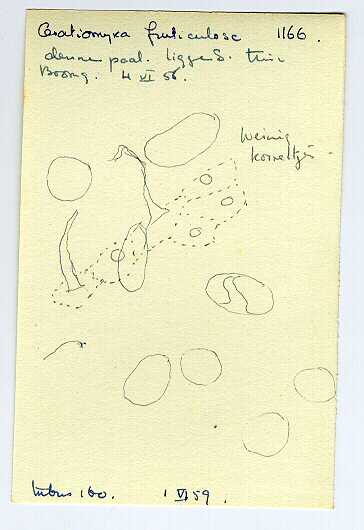 Ceratiomyxa fruticulosa 1166.
dennepaal. ligger S. tuin
Boomg. 4 VI 56.
Weinig
korreltjes
tubus 160. 1 VI 59.